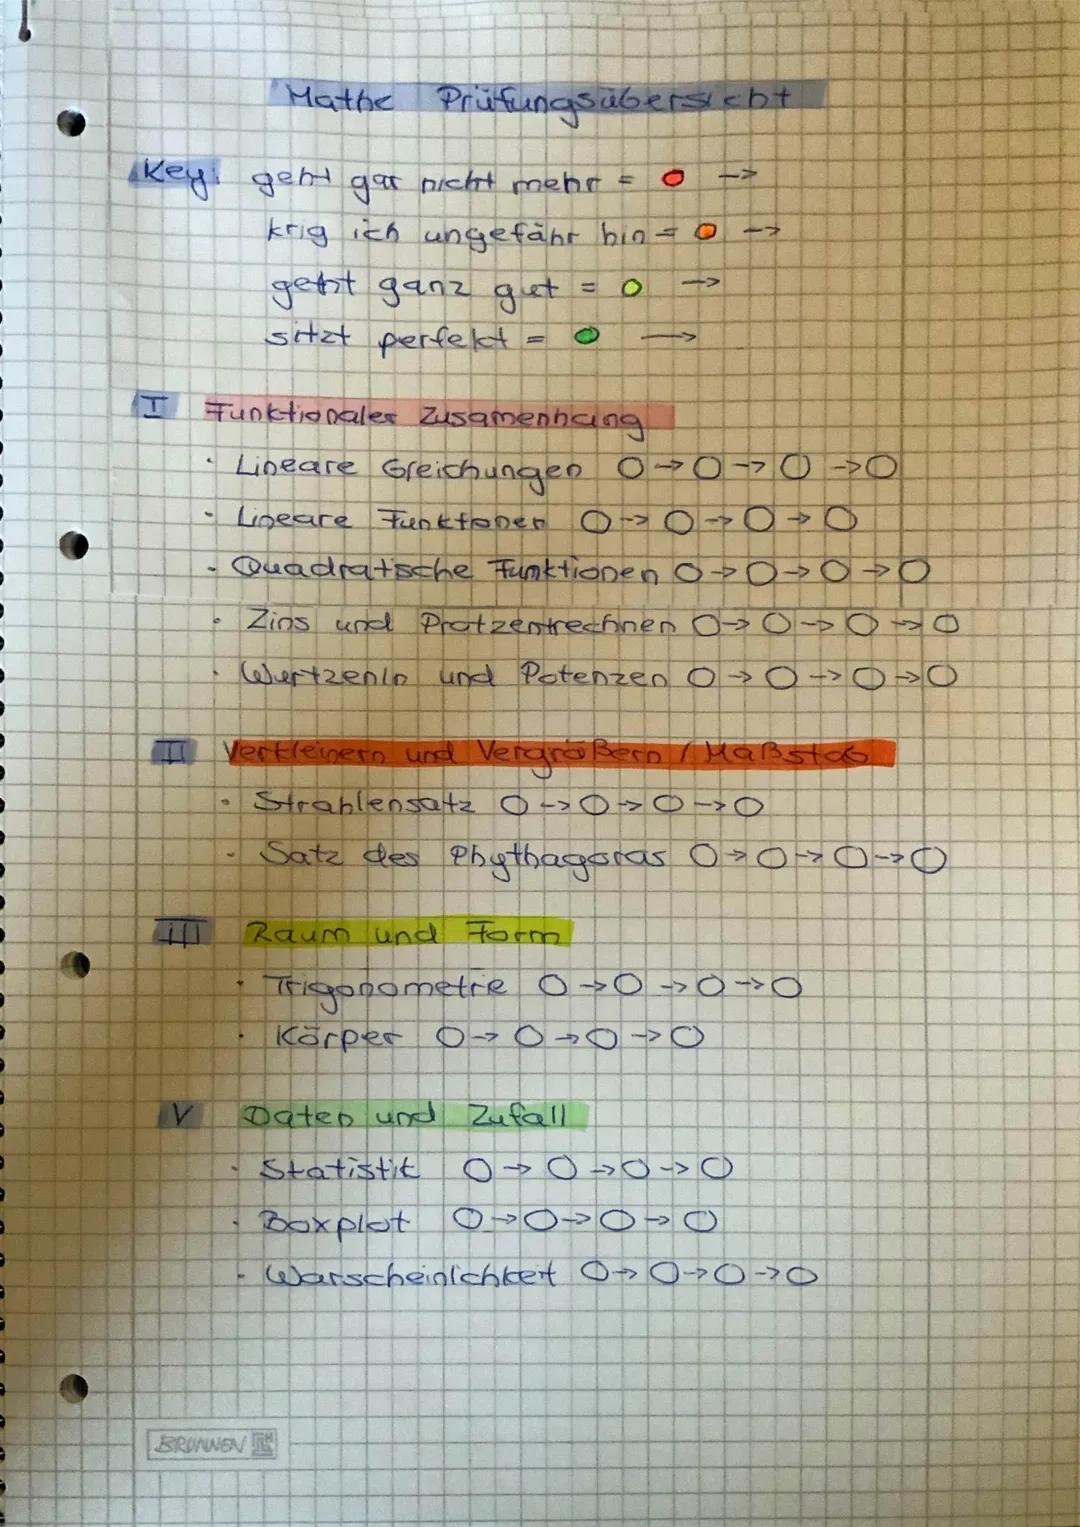 Mathe Prüfungsübersicht
Key: geht gar nicht mehr = O -->
krig ich ungefähr hin = O -->
geht ganz gut = O ->
sitzt perfekt = O ->
I Funktionaler Zusamenhang
· Lineare Gleichungen O -> O -> O -> O
· Lineare Funktionen O -> O -> O -> O
· Quadratische Funktionen O -> O -> O -> O
· Zins und Protzentrechnen O -> O -> O -> O
· Wurtzenln und Potenzen O -> O -> O -> O
II Verkleinern und Vergrößern / Maßstab
· Strahlensatz O -> O -> O -> O
· Satz des Phythagoras O -> O -> O -> O
III Raum und Form
· Trigonometrie O -> O -> O -> O
· Körper O -> O -> O -> O
V Daten und Zufall
· Statistik O -> O -> O -> O
· Boxplot O -> O -> O -> O
· Warscheinlichkeit O -> O -> O -> O
BRUNNEN